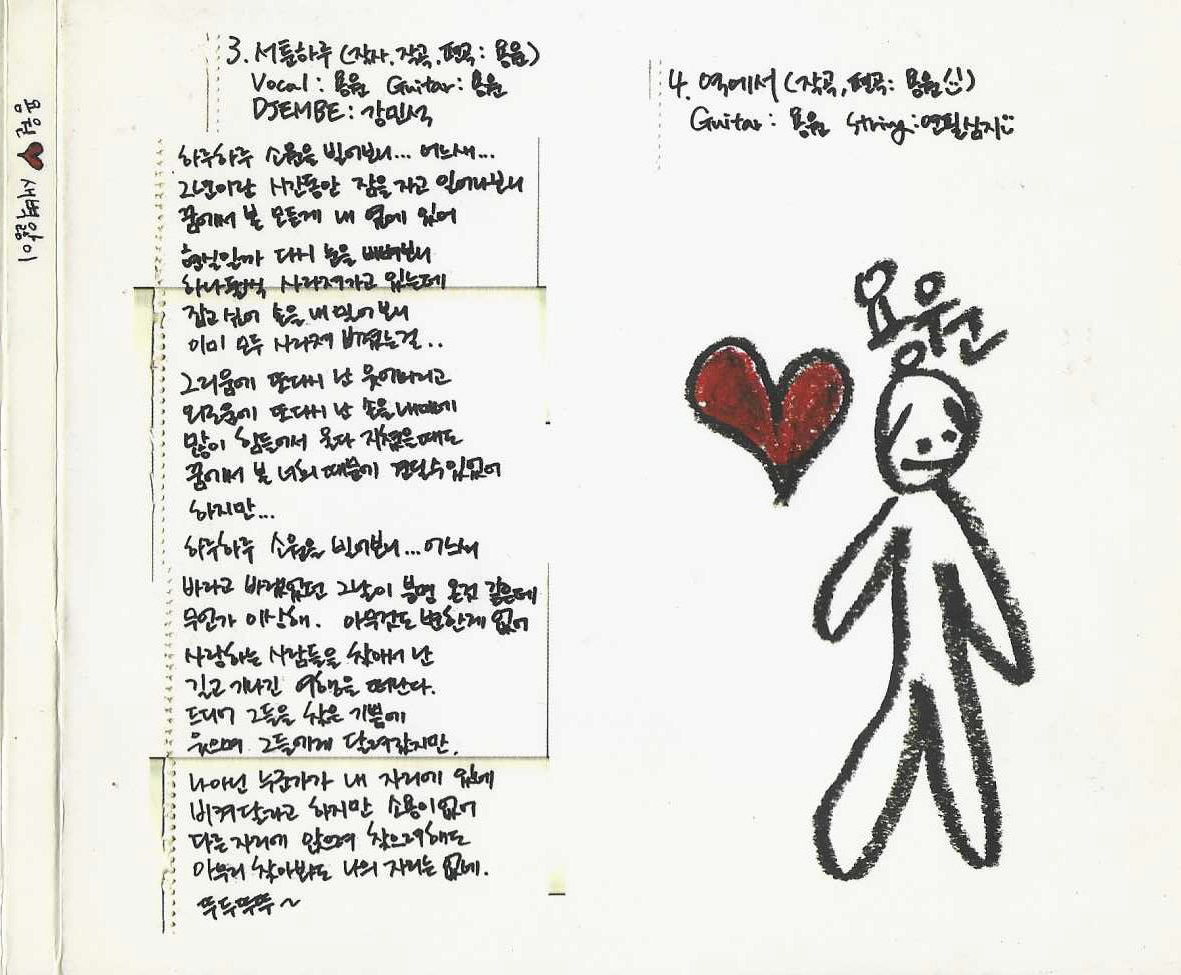 용원 ♥ 새벽앓이
3. 서툰하루 (작사,작곡,편곡: 용원)
Vocal : 용원 Guitar : 용원
DJEMBE : 강민석
하루하루 소원을 빌어보니... 어느새...
2년이란 시간동안 잠을 자고 일어나보니
꿈에서 본 모든게 내 옆에 있어
현실일까 다시 눈을 비벼보니
하나둘씩 사라져가고 있는데
잡고싶어 손을 내밀어보니
이미 모두 사라져 버렸는걸..
그리움에 또다시 난 웃어버리고
외로움에 또다시 난 손을내미네
많이 힘들어서 울다 지쳤을때도
꿈에서 본 너희 때문에 견딜수있었어
하지만...
하루하루 소원을 빌어보니...어느새
바라고 바래왔던 그날이 분명 온것 같은데
무언가 이상해. 아무것도 변한게 없어
사랑하는 사람들을 찾아서 난
길고 기나긴 여행을 떠난다.
드디어 그들을 찾은 기쁨에
웃으며 그들에게 달려갔지만.
나아닌 누군가가 내 자리에 있네
비켜달라고 하지만 소용이없어
다른자리에 앉으려 찾으려해도
아무리 찾아봐도 나의 자리는 없네.
뚜두뚜뚜~
4. 역에서 (작곡,편곡: 용원)
Guitar : 용원 String : 연필삼지
용원